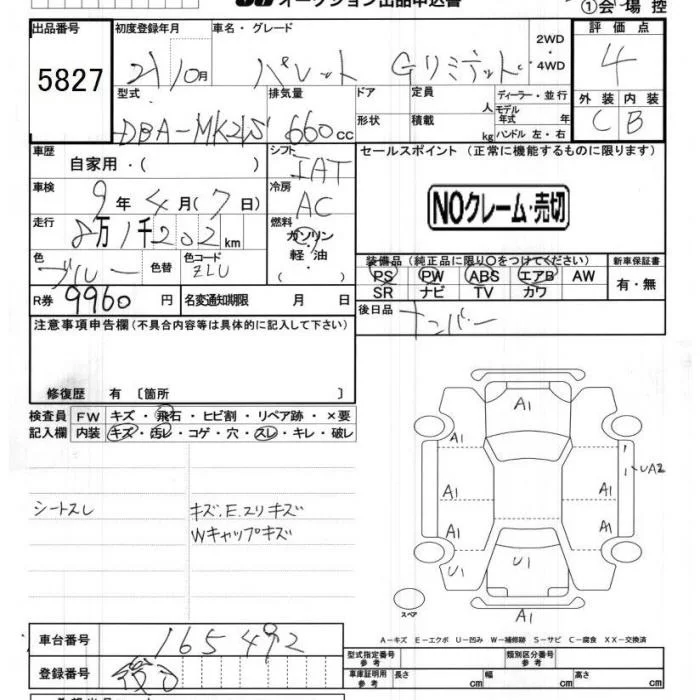 オークション出品申込書
①会場控
出品番号 初度登録年月 車名・グレード 2WD ・4WD 評価点
5827 21 10月 パレット Gリミテッド 4
型式 排気量 ドア 定員 人 ディーラー・並行 外装 内装
DBA-MK21S 660cc 形状 積載 kg モデル年式 年 ハンドル 左・右 C B
車歴 自家用・( ) シフト IAT セールスポイント (正常に機能するものに限ります)
車検 9年4月(7日) 冷房 AC NOクレーム・売切
走行 8万1千202km 燃料 ガソリン
軽油・( )
色 ブルー 色替 色コード ZLU 装備品 (純正品に限り〇をつけてください) 新車保証書
PS PW ABS エアB AW 有・無
SR ナビ TV カワ
R券 9960円 名変通知期限 月 日 後日品 ナンバー
注意事項申告欄(不具合内容等は具体的に記入して下さい)
修復歴 有 〔箇所 〕
検査員 FW キズ・飛石・ヒビ割・リペア跡・×要
記入欄 内装 キズ・汚レ・コゲ・穴・スレ・キレ・破レ
シートスレ キズ、エスリキズ
Wキャップキズ
A1
A1
UA2
A1 A1
A1 A1
U1 U1
スペア A1
A-キズ E-エクボ U-凹み W-補修跡 S-サビ C-腐食 XX-交換済
車台番号 165492
型式指定番号 参考 類別区分番号 参考
登録番号
車庫証明用 参考 長さ cm 幅 cm 高さ cm